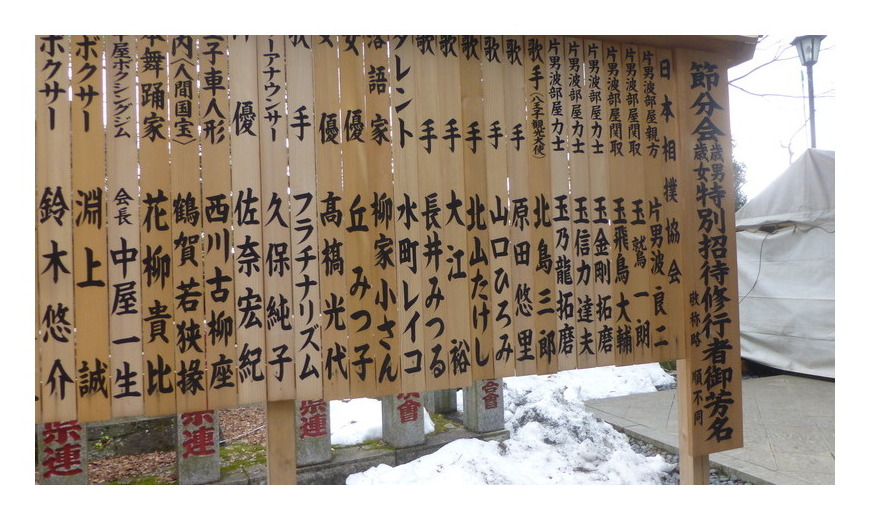 節分会歳男歳女特別招待修行者御芳名
敬称略 順不同
日本相撲協会
片男波部屋親方 片男波 良二
片男波部屋関取 玉鷲 一朗
片男波部屋関取 玉飛鳥 大輔
片男波部屋力士 玉金剛 拓磨
片男波部屋力士 玉信力 達夫
片男波部屋力士 玉乃龍 拓磨
歌手(八王子観光大使) 北島三郎
歌手 原田悠里
歌手 山口ひろみ
歌手 北山たけし
歌手 大江裕
歌手 長井みつる
タレント 水町レイコ
落語家 柳家小さん
女優 丘みつ子
女優 高橋光代
歌手 フラチナリズム
ーアナウンサー 久保純子
優 佐奈宏紀
車人形 西川古柳座
内(人間国宝) 鶴賀若狭掾
本舞踊家 花柳貴比
屋ボクシングジム 会長 中屋一生
ボクサー 淵上誠
ボクサー 鈴木悠介
県連
県連
県連
會
合會